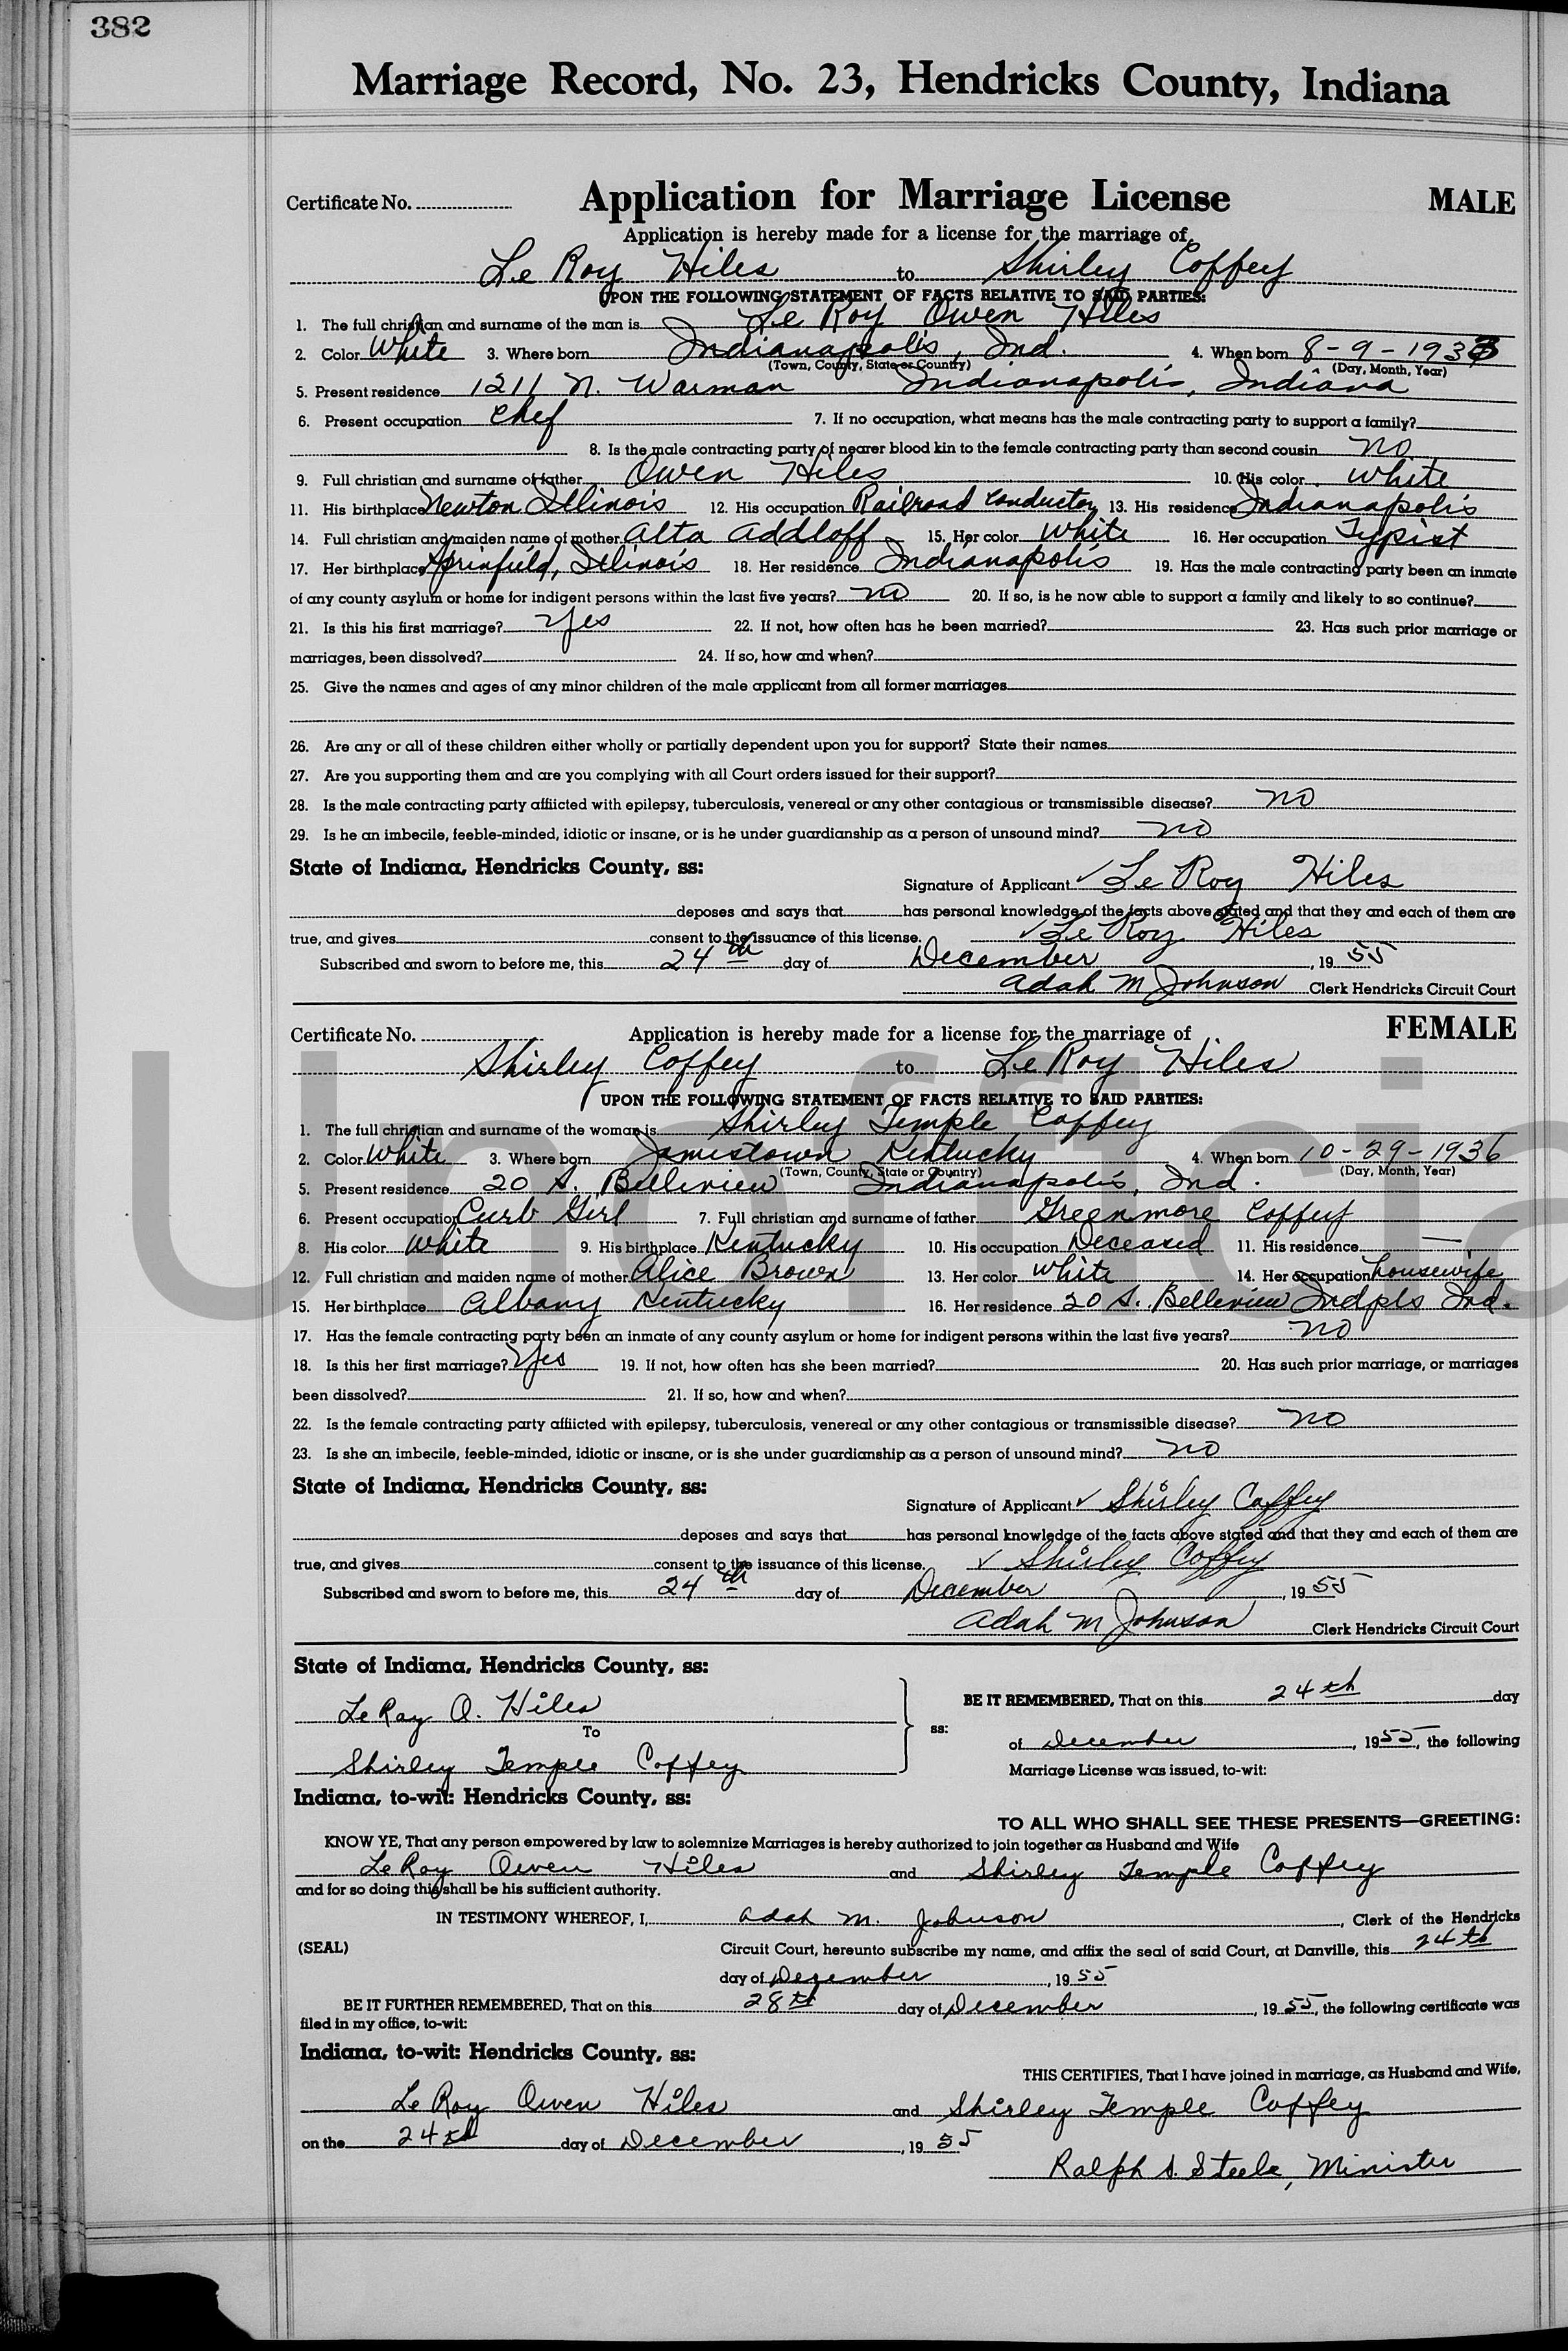 382
Marriage Record, No. 23, Hendricks County, Indiana
Certificate No. Application for Marriage License MALE
Application is hereby made for a license for the marriage of
Le Roy Hiles to Shirley Coffey
UPON THE FOLLOWING STATEMENT OF FACTS RELATIVE TO SAID PARTIES:
1. The full christian and surname of the man is Le Roy Owen Hiles
2. Color White 3. Where born Indianapolis, Ind. 4. When born 8-9-1933
(Town, County, State or Country) (Day, Month, Year)
5. Present residence 1211 N. Warman Indianapolis, Indiana
6. Present occupation Chef 7. If no occupation, what means has the male contracting party to support a family?
8. Is the male contracting party of nearer blood kin to the female contracting party than second cousin no
9. Full christian and surname of father Owen Hiles 10. His color White
11. His birthplace Newton Illinois 12. His occupation Railroad Conductor 13. His residence Indianapolis
14. Full christian and maiden name of mother Alta Addloff 15. Her color White 16. Her occupation Typist
17. Her birthplace Sprinfield, Illinois 18. Her residence Indianapolis 19. Has the male contracting party been an inmate
of any county asylum or home for indigent persons within the last five years? no 20. If so, is he now able to support a family and likely to so continue?
21. Is this his first marriage? Yes 22. If not, how often has he been married? 23. Has such prior marriage or
marriages, been dissolved? 24. If so, how and when?
25. Give the names and ages of any minor children of the male applicant from all former marriages
26. Are any or all of these children either wholly or partially dependent upon you for support? State their names
27. Are you supporting them and are you complying with all Court orders issued for their support?
28. Is the male contracting party afflicted with epilepsy, tuberculosis, venereal or any other contagious or transmissible disease? no
29. Is he an imbecile, feeble-minded, idiotic or insane, or is he under guardianship as a person of unsound mind? no
State of Indiana, Hendricks County, ss:
Signature of Applicant ✓ Le Roy Hiles
deposes and says that has personal knowledge of the facts above stated and that they and each of them are
true, and gives consent to the issuance of this license. ✓ Le Roy Hiles
Subscribed and sworn to before me, this 24th day of December, 1955
Adah M Johnson Clerk Hendricks Circuit Court
Certificate No. Application is hereby made for a license for the marriage of FEMALE
Shirley Coffey to Le Roy Hiles
UPON THE FOLLOWING STATEMENT OF FACTS RELATIVE TO SAID PARTIES:
1. The full christian and surname of the woman is Shirley Temple Coffey
2. Color White 3. Where born Jamestown Kentucky 4. When born 10-29-1936
(Town, County, State or Country) (Day, Month, Year)
5. Present residence 20 S. Belleview Indianapolis, Ind.
6. Present occupation Curb Girl 7. Full christian and surname of father Greenmore Coffey
8. His color White 9. His birthplace Kentucky 10. His occupation Deceased 11. His residence —
12. Full christian and maiden name of mother Alice Brown 13. Her color White 14. Her occupation housewife
15. Her birthplace Albany Kentucky 16. Her residence 20 S. Belleview Indpls Ind.
17. Has the female contracting party been an inmate of any county asylum or home for indigent persons within the last five years? no
18. Is this her first marriage? Yes 19. If not, how often has she been married? 20. Has such prior marriage, or marriages
been dissolved? 21. If so, how and when?
22. Is the female contracting party afflicted with epilepsy, tuberculosis, venereal or any other contagious or transmissible disease? no
23. Is she an imbecile, feeble-minded, idiotic or insane, or is she under guardianship as a person of unsound mind? no
State of Indiana, Hendricks County, ss:
Signature of Applicant ✓ Shirley Coffey
deposes and says that has personal knowledge of the facts above stated and that they and each of them are
true, and gives consent to the issuance of this license. ✓ Shirley Coffey
Subscribed and sworn to before me, this 24th day of December, 1955
Adah M Johnson Clerk Hendricks Circuit Court
State of Indiana, Hendricks County, ss:
LeRoy O. Hiles BE IT REMEMBERED, That on this 24th day
To ss:
of December, 1955, the following
Shirley Temple Coffey Marriage License was issued, to-wit:
Indiana, to-wit: Hendricks County, ss:
TO ALL WHO SHALL SEE THESE PRESENTS—GREETING:
KNOW YE, That any person empowered by law to solemnize Marriages is hereby authorized to join together as Husband and Wife
LeRoy Owen Hiles and Shirley Temple Coffey
and for so doing this shall be his sufficient authority.
IN TESTIMONY WHEREOF, I, Adah M. Johnson, Clerk of the Hendricks
(SEAL) Circuit Court, hereunto subscribe my name, and affix the seal of said Court, at Danville, this 24th
day of December, 1955
BE IT FURTHER REMEMBERED, That on this 28th day of December, 1955, the following certificate was
filed in my office, to-wit:
Indiana, to-wit: Hendricks County, ss:
THIS CERTIFIES, That I have joined in marriage, as Husband and Wife,
Le Roy Owen Hiles and Shirley Temple Coffey
on the 24th day of December, 1955
Ralph S. Steele, Minister
Unofficia